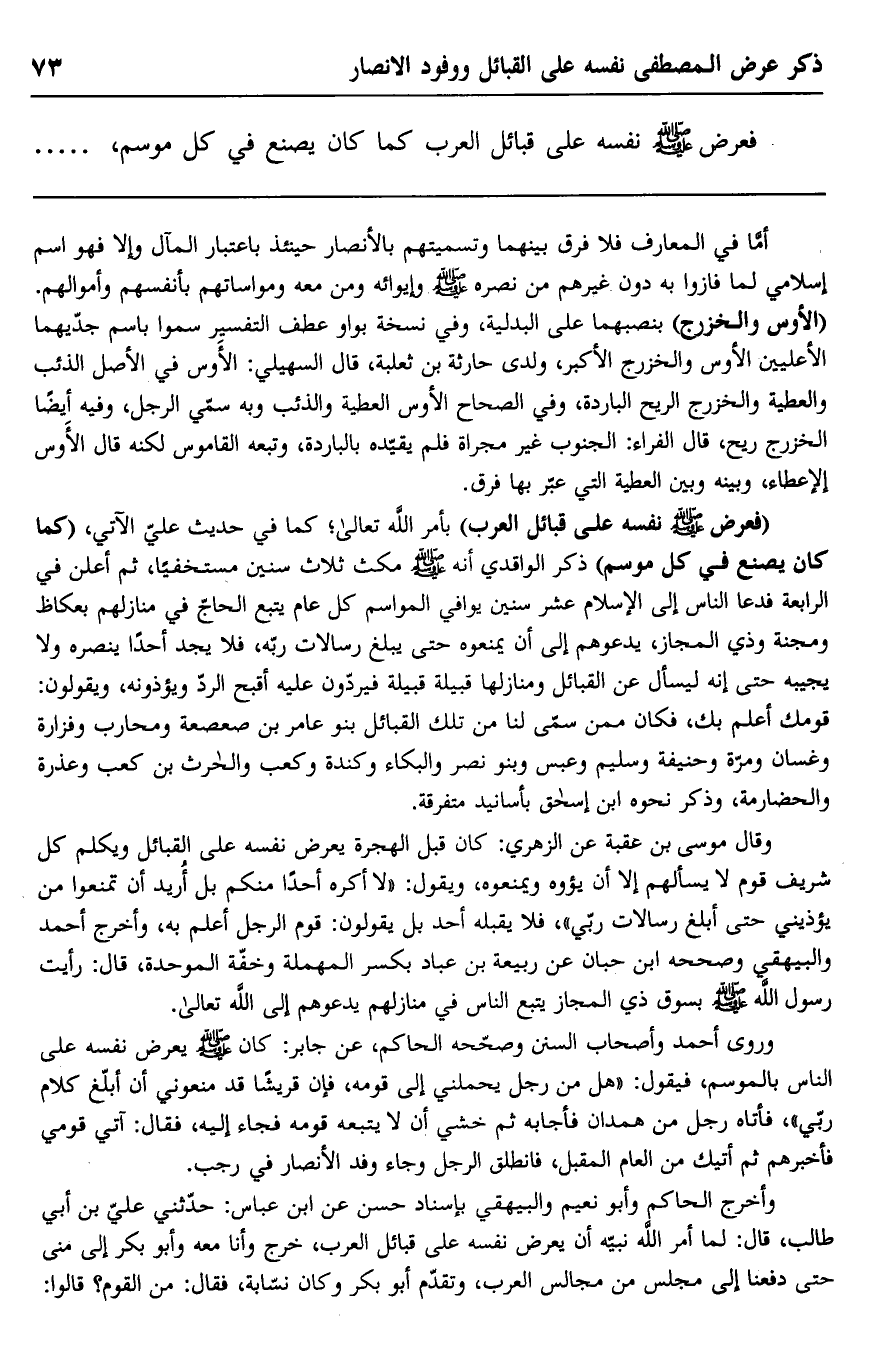 ذكر عرض المصطفى نفسه على القبائل ووفود الانصار ٧٣
فعرض ﷺ نفسه على قبائل العرب كما كان يصنع في كل موسم، .....
أمَّا في المعارف فلا فرق بينهما وتسميتهم بالأنصار حينئذ باعتبار المآل وإلا فهو اسم
إسلامي لما فازوا به دون غيرهم من نصره ﷺ وإيوائه ومن معه ومواساتهم بأنفسهم وأموالهم.
(الأوس والخزرج) بنصبهما على البدلية، وفي نسخة بواو عطف التفسير سموا باسم جدّيهما
الأعليين الأوس والخزرج الأكبر، ولدى حارثة بن ثعلبة، قال السهيلي: الأَوس في الأصل الذئب
والعطية والخزرج الريح الباردة، وفي الصحاح الأوس العطية والذئب وبه سمّي الرجل، وفيه أيضًا
الخزرج ريح، قال الفراء: الجنوب غير مجراة فلم يقيّده بالباردة، وتبعه القاموس لكنه قال الأَوس
الإعطاء، وبينه وبين العطية التي عبّر بها فرق.
(فعرض ﷺ نفسه على قبائل العرب) بأمر اللَّه تعالىٰ؛ كما في حديث عليّ الآتي، (كما
كان يصنع في كل موسم) ذكر الواقدي أنه ﷺ مكث ثلاث سنين مستخفيًا، ثم أعلن في
الرابعة فدعا الناس إلى الإسلام عشر سنين يوافي المواسم كل عام يتبع الحاجّ في منازلهم بعكاظ
ومجنة وذي المجاز، يدعوهم إلى أن يمنعوه حتى يبلغ رسالات ربّه، فلا يجد أحدًا ينصره ولا
يجيبه حتى إنه ليسأل عن القبائل ومنازلها قبيلة قبيلة فيردّون عليه أقبح الردّ ويؤذونه، ويقولون:
قومك أعلم بك، فكان ممن سمّى لنا من تلك القبائل بنو عامر بن صعصعة ومحارب وفزارة
وغسان ومرّة وحنيفة وسليم وعبس وبنو نصر والبكاء وكندة وكعب والحٰرث بن كعب وعذرة
والحضارمة، وذكر نحوه ابن إسحٰق بأسانيد متفرقة.
وقال موسى بن عقبة عن الزهري: كان قبل الهجرة يعرض نفسه على القبائل ويكلم كل
شريف قوم لا يسألهم إلا أن يؤوه ويمنعوه، ويقول: «لا أكره أحدًا منكم بل أُريد أن تمنعوا من
يؤذيني حتى أبلغ رسالات ربّي»، فلا يقبله أحد بل يقولون: قوم الرجل أعلم به، وأخرج أحمد
والبيهقي وصححه ابن حبان عن ربيعة بن عباد بكسر المهملة وخفّة الموحدة، قال: رأيت
رسول اللَّه ﷺ بسوق ذي المجاز يتبع الناس في منازلهم يدعوهم إلى اللَّه تعالىٰ.
وروى أحمد وأصحاب السنن وصحّحه الحاكم، عن جابر: كان ﷺ يعرض نفسه على
الناس بالموسم، فيقول: «هل من رجل يحملني إلى قومه، فإن قريشًا قد منعوني أن أبلّغ كلام
ربّي»، فأتاه رجل من همدان فأجابه ثم خشي أن لا يتبعه قومه فجاء إليه، فقال: آتي قومي
فأخبرهم ثم أتيك من العام المقبل، فانطلق الرجل وجاء وفد الأنصار في رجب.
وأخرج الحاكم وأبو نعيم والبيهقي بإسناد حسن عن ابن عباس: حدّثني عليّ بن أبي
طالب، قال: لما أمر اللَّه نبيّه أن يعرض نفسه على قبائل العرب، خرج وأنا معه وأبو بكر إلى منى
حتى دفعنا إلى مجلس من مجالس العرب، وتقدّم أبو بكر وكان نسّابة، فقال: من القوم؟ قالوا: